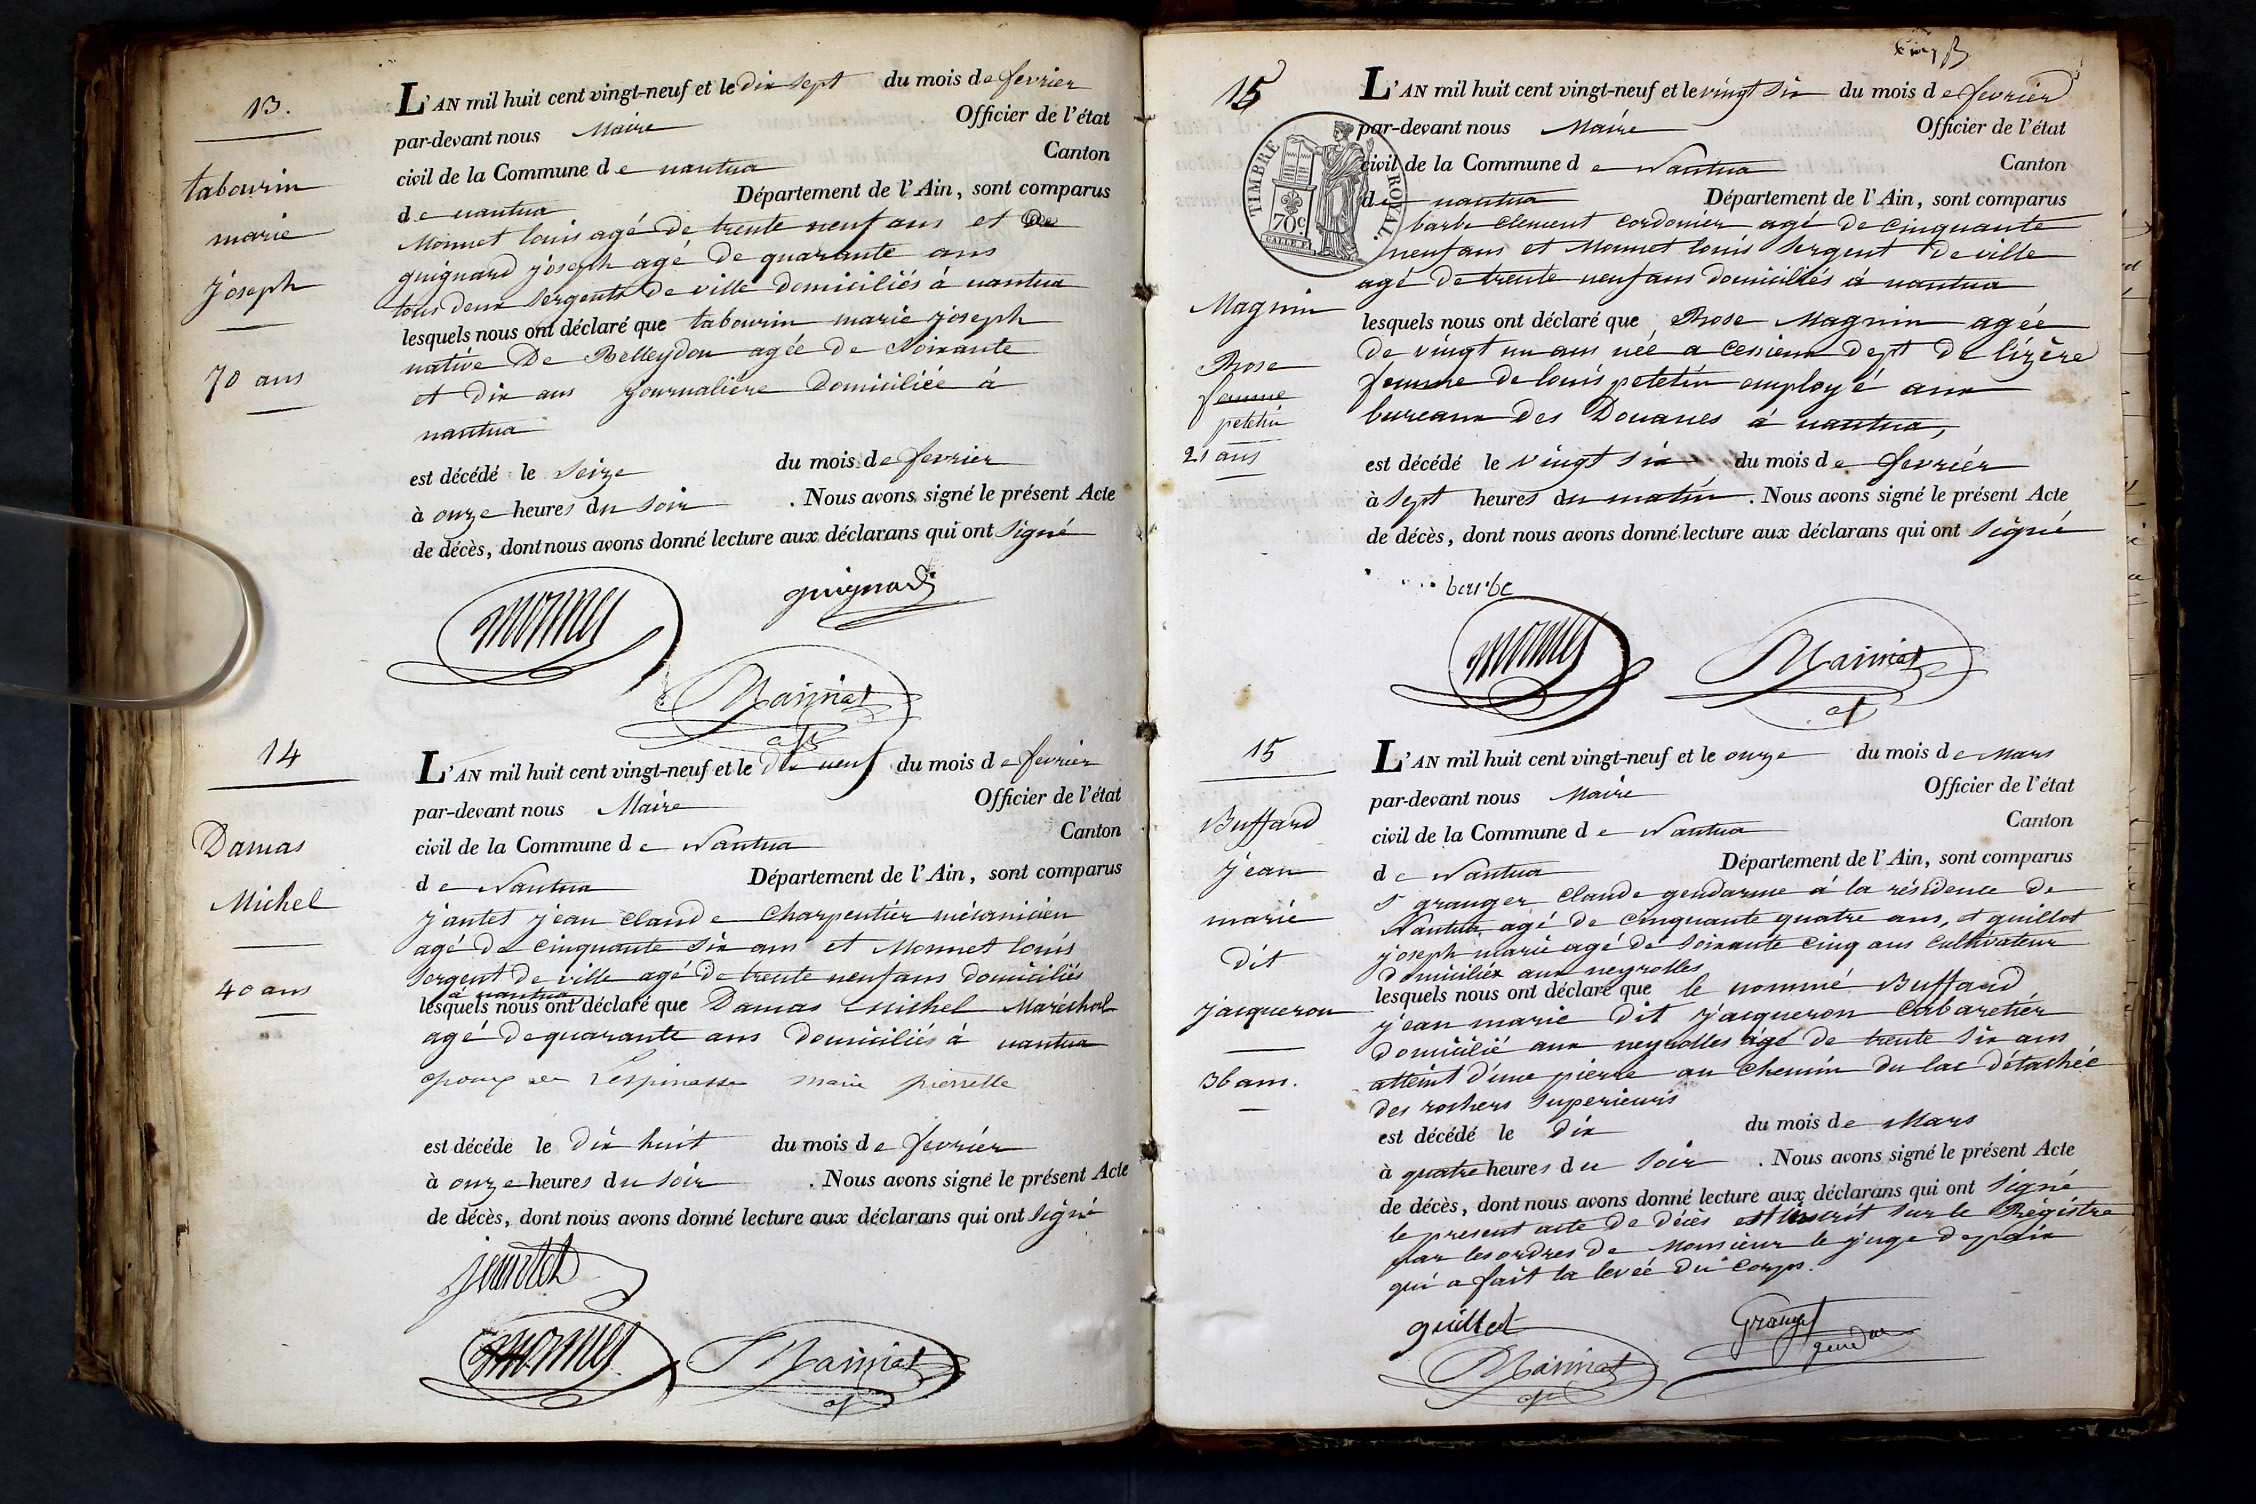 13.
tabourin
marie
joseph
70 ans
L'AN mil huit cent vingt-neuf et le dix sept du mois de fevrier
par-devant nous Maire Officier de l'état
civil de la Commune de nantua Canton
de nantua Département de l'Ain, sont comparus
Monnet louis agé de trente neuf ans et de
guignard joseph agé de quarante ans
tous deux sergents de ville domiciliés à nantua
lesquels nous ont déclaré que tabourin marie joseph
native De Belleydou agée de Soixante
et dix ans journalière Domiciliée à
nantua
est décédé le seize du mois de fevrier
à onze heures du soir . Nous avons signé le présent Acte
de décès, dont nous avons donné lecture aux déclarans qui ont signé
monnet guignard
14
Damas
Michel
40 ans
L'AN mil huit cent vingt-neuf et le dix neuf du mois de fevrier
par-devant nous Maire Officier de l'état
civil de la Commune de Nantua Canton
de Nantua Département de l'Ain, sont comparus
jantet jean claude Charpentier mécanicien
agé de cinquante six ans et Monnet louis
sergent de ville agé de trente neuf ans domiciliés
à nantua
lesquels nous ont déclaré que Damas Michel Maréchal
agé de quarante ans domiciliés à nantua
epoux de Lespinasse marie pierrette
est décédé le dix huit du mois de fevrier
à onze heures du soir . Nous avons signé le présent Acte
de décès, dont nous avons donné lecture aux déclarans qui ont signé
monnet
15
TIMBRE ROYAL.
70c.
Magnin
Rose
femme
petetin
21 ans
L'AN mil huit cent vingt-neuf et le vingt six du mois de fevrier
par-devant nous Maire Officier de l'état
civil de la Commune de Nantua Canton
de nantua Département de l'Ain, sont comparus
barbe clement cordonier agé de cinquante
neuf ans et Monnet louis sergent de ville
agé de trente neuf ans domiciliés à nantua
lesquels nous ont déclaré que Rose Magnin agée
de vingt un ans née a Cessieux dept de lizère
femme de louis petetin employé aux
bureaux des Douanes à nantua,
est décédé le vingt six du mois de fevriér
à sept heures du matin . Nous avons signé le présent Acte
de décès, dont nous avons donné lecture aux déclarans qui ont signé
barbe
monnet
15
Buffard
jean
marie
dit
jacqueron
36 ans.
L'AN mil huit cent vingt-neuf et le onze du mois de mars
par-devant nous Maire Officier de l'état
civil de la Commune de Nantua Canton
de Nantua Département de l'Ain, sont comparus
Sr granger Claude gendarme à la résidence de
Nantua, agé de cinquante quatre ans, et guillot
joseph marie agé de soixante cinq ans cultivateur
domiciliés aux neyrolles
lesquels nous ont déclaré que le nommé Buffard
jean marie dit jacqueron Cabaretiér
domicilié aux neyrolles agé de trente six ans
atteint d'une pierre au chemin du lac détachée
des rochers superieurs
est décédé le dix du mois de Mars
à quatre heures du soir . Nous avons signé le présent Acte
de décès, dont nous avons donné lecture aux déclarans qui ont signé
le present acte de décès est inscrit sur le Régistre
par les ordres de Monsieur le juge de paix
qui a fait la levée du corps.
guillot Granger
gend